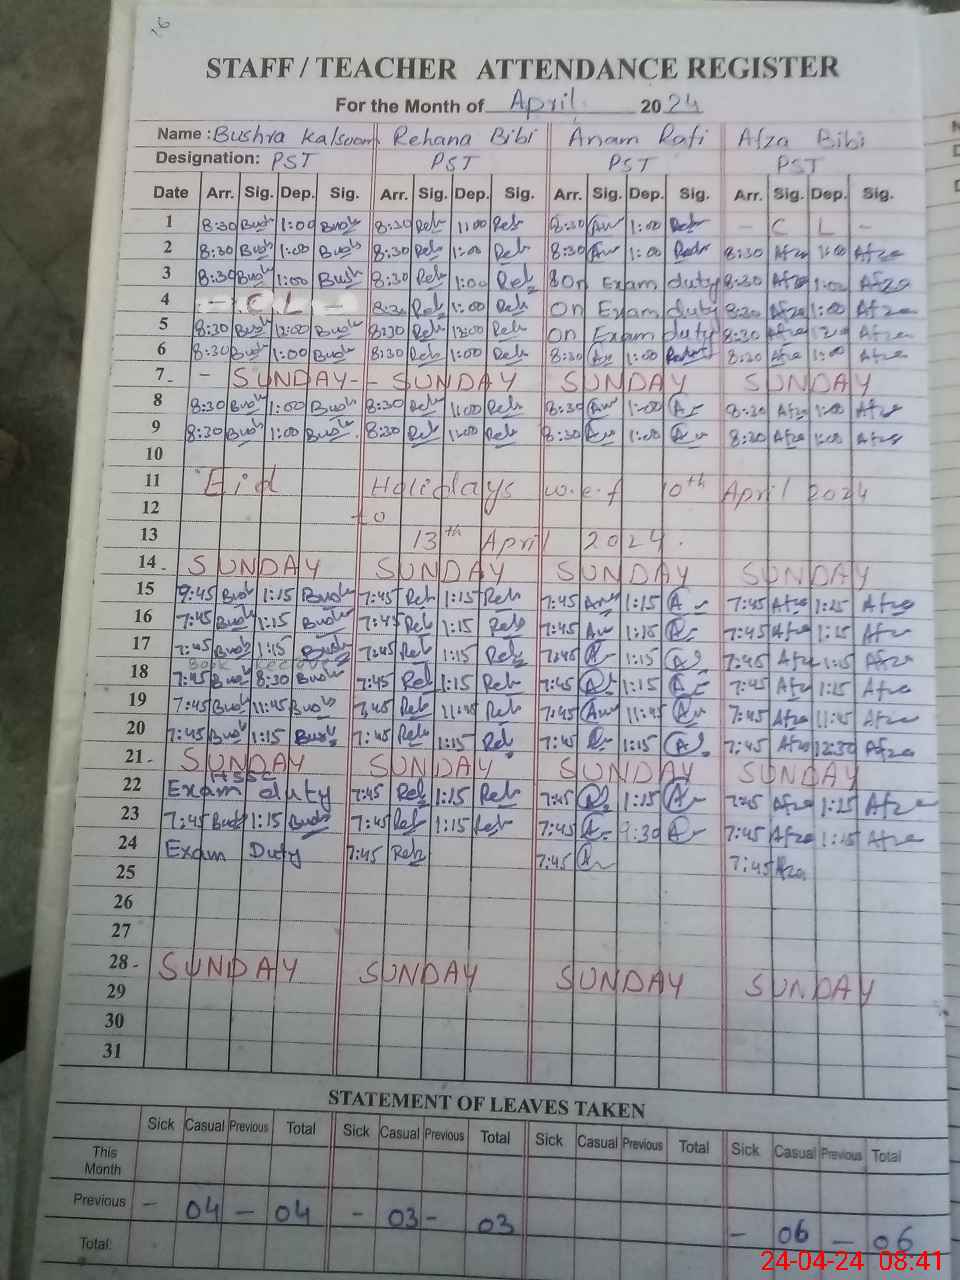 STAFF / TEACHER ATTENDANCE REGISTER
For the Month of April 2024
Name : Bushra Kalsoom Rehana Bibi Anam Rafi Afza Bibi
Designation: PST PST PST PST
Date Arr. Sig. Dep. Sig. Arr. Sig. Dep. Sig. Arr. Sig. Dep. Sig. Arr. Sig. Dep. Sig.
1 8:30 Bush 1:00 Bush 8:30 Reh 1:00 Reh 8:30 1:00 - C L -
2 8:30 Bush 1:00 Bush 8:30 Reh 1:00 Reh 8:30 1:00 8:30 Afza 1:00 Afza
3 8:30 Bush 1:00 Bush 8:30 Reh 1:00 Reh On Exam duty 8:30 Afza 1:00 Afza
4 - C L - 8:30 Reh 1:00 Reh On Exam duty 8:30 Afza 1:00 Afza
5 8:30 Bush Bush 8:30 Reh Reh On Exam duty 8:30 Afza Afza
6 8:30 Bush 1:00 Bush 8:30 Reh 1:00 Reh 8:30 1:00 8:30 Afza 1:00 Afza
7 - - SUNDAY - - SUNDAY SUNDAY SUNDAY
8 8:30 Bush 1:00 Bush 8:30 Reh 1:00 Reh 8:30 1:00 8:30 Afza 1:00 Afza
9 8:30 Bush 1:00 Bush 8:30 Reh 1:00 Reh 8:30 1:00 8:30 Afza 1:00 Afza
10
11 Eid Holidays w.e.f 10th April 2024
12 to
13 13th April 2024.
14 - SUNDAY SUNDAY SUNDAY SUNDAY
15 Bush 1:15 Bush 7:45 Reh 1:15 Reh 7:45 1:15 7:45 Afza 1:15 Afza
16 7:45 Bush 1:15 Bush 7:45 Reh 1:15 Reh 7:45 1:15 7:45 Afza 1:15 Afza
17 7:45 Bush 1:15 Bush 7:45 Reh 1:15 Reh 7:45 1:15 7:45 Afza 1:15 Afza
18 7:45 Bush 8:30 Bush 7:45 Reh 1:15 Reh 7:45 1:15 7:45 Afza 1:15 Afza
19 7:45 Bush 11:45 Bush 7:45 Reh 11:45 Reh 7:45 11:45 7:45 Afza 11:45 Afza
20 7:45 Bush 1:15 Bush 7:45 Reh 1:15 Reh 7:45 1:15 7:45 Afza 12:30 Afza
21 - SUNDAY SUNDAY SUNDAY SUNDAY
HSSC
22 Exam duty 7:45 Reh 1:15 Reh 7:45 1:15 7:45 Afza 1:15 Afza
23 7:45 Bush 1:15 Bush 7:45 Reh 1:15 Reh 7:45 9:30 7:45 Afza 1:15 Afza
24 Exam Duty 7:45 Reh 7:45 7:45 Afza
25
26
27
28 - SUNDAY SUNDAY SUNDAY SUNDAY
29
30
31
STATEMENT OF LEAVES TAKEN
Sick Casual Previous Total Sick Casual Previous Total Sick Casual Previous Total Sick Casual Previous Total
This Month
Previous - 04 - 04 - 03 - 03 - 06 - 06
Total:
24-04-24 08:41